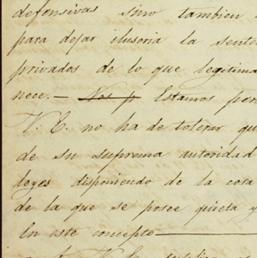 defensivas sino tambien
para dejar ilusoria la sente
privados de lo que legitima
nece.— Nos p Estamos per
V. E. no ha de tolerar qu
de su suprema autoridad
leyes disponiendo de la cosa
de la que se posee quieta y
En este concepto